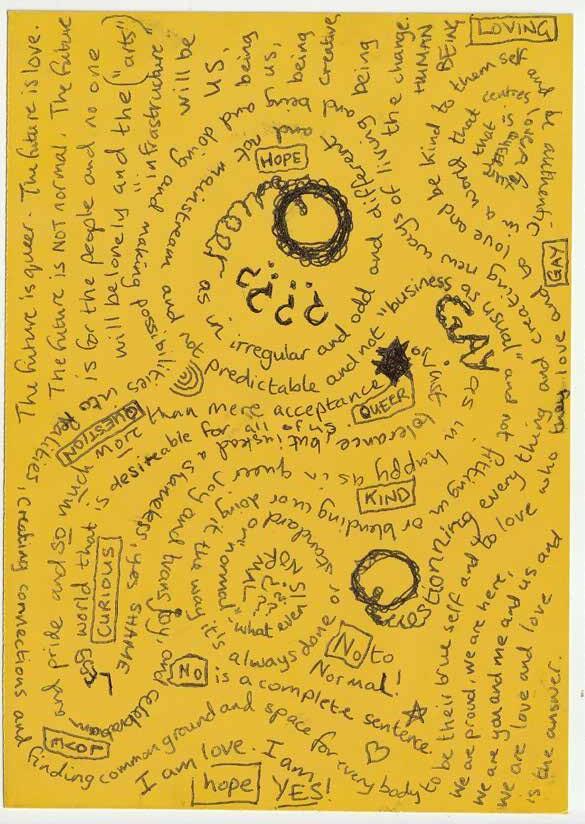 The future is queer. The future is love.
The future is NOT normal. The future
is for the people and no one
will be lonely and the "arts"
"infrastructure"
will be
us,
being
us,
being
creative
being
the change.
HUMAN
BEING
LOVING
HOPE
queer as in irregular and odd and different and
not mainstream and not predictable and not "business as
making possibilities into
realities, creating connections and
finding common ground and space for everybody
to be their true self and to love who they love and
new ways of living and being and doing and making
be kind to them self
and be authentic
in a world that centres
love and
GAY
GAY as in just
happy as in queer joy
QUEER
KIND
QUESTION
than mere acceptance
tolerance, but instead
questionning everything and creating
fitting in
or blending in or doing it the way it's always done or
standard or "normal"
what even
IS
NORMAL
???
???
and pride and so much
world that is desireable for
now
CURIOUS
a shameless, yes SHAME
LESS
joy and trans joy and celebration
LOVE
NO is a complete sentence.
No to
Normal!
I am love. I am
hope YES!
we are proud, we are here,
we are you and me and us and
we are love and love
is the answer.